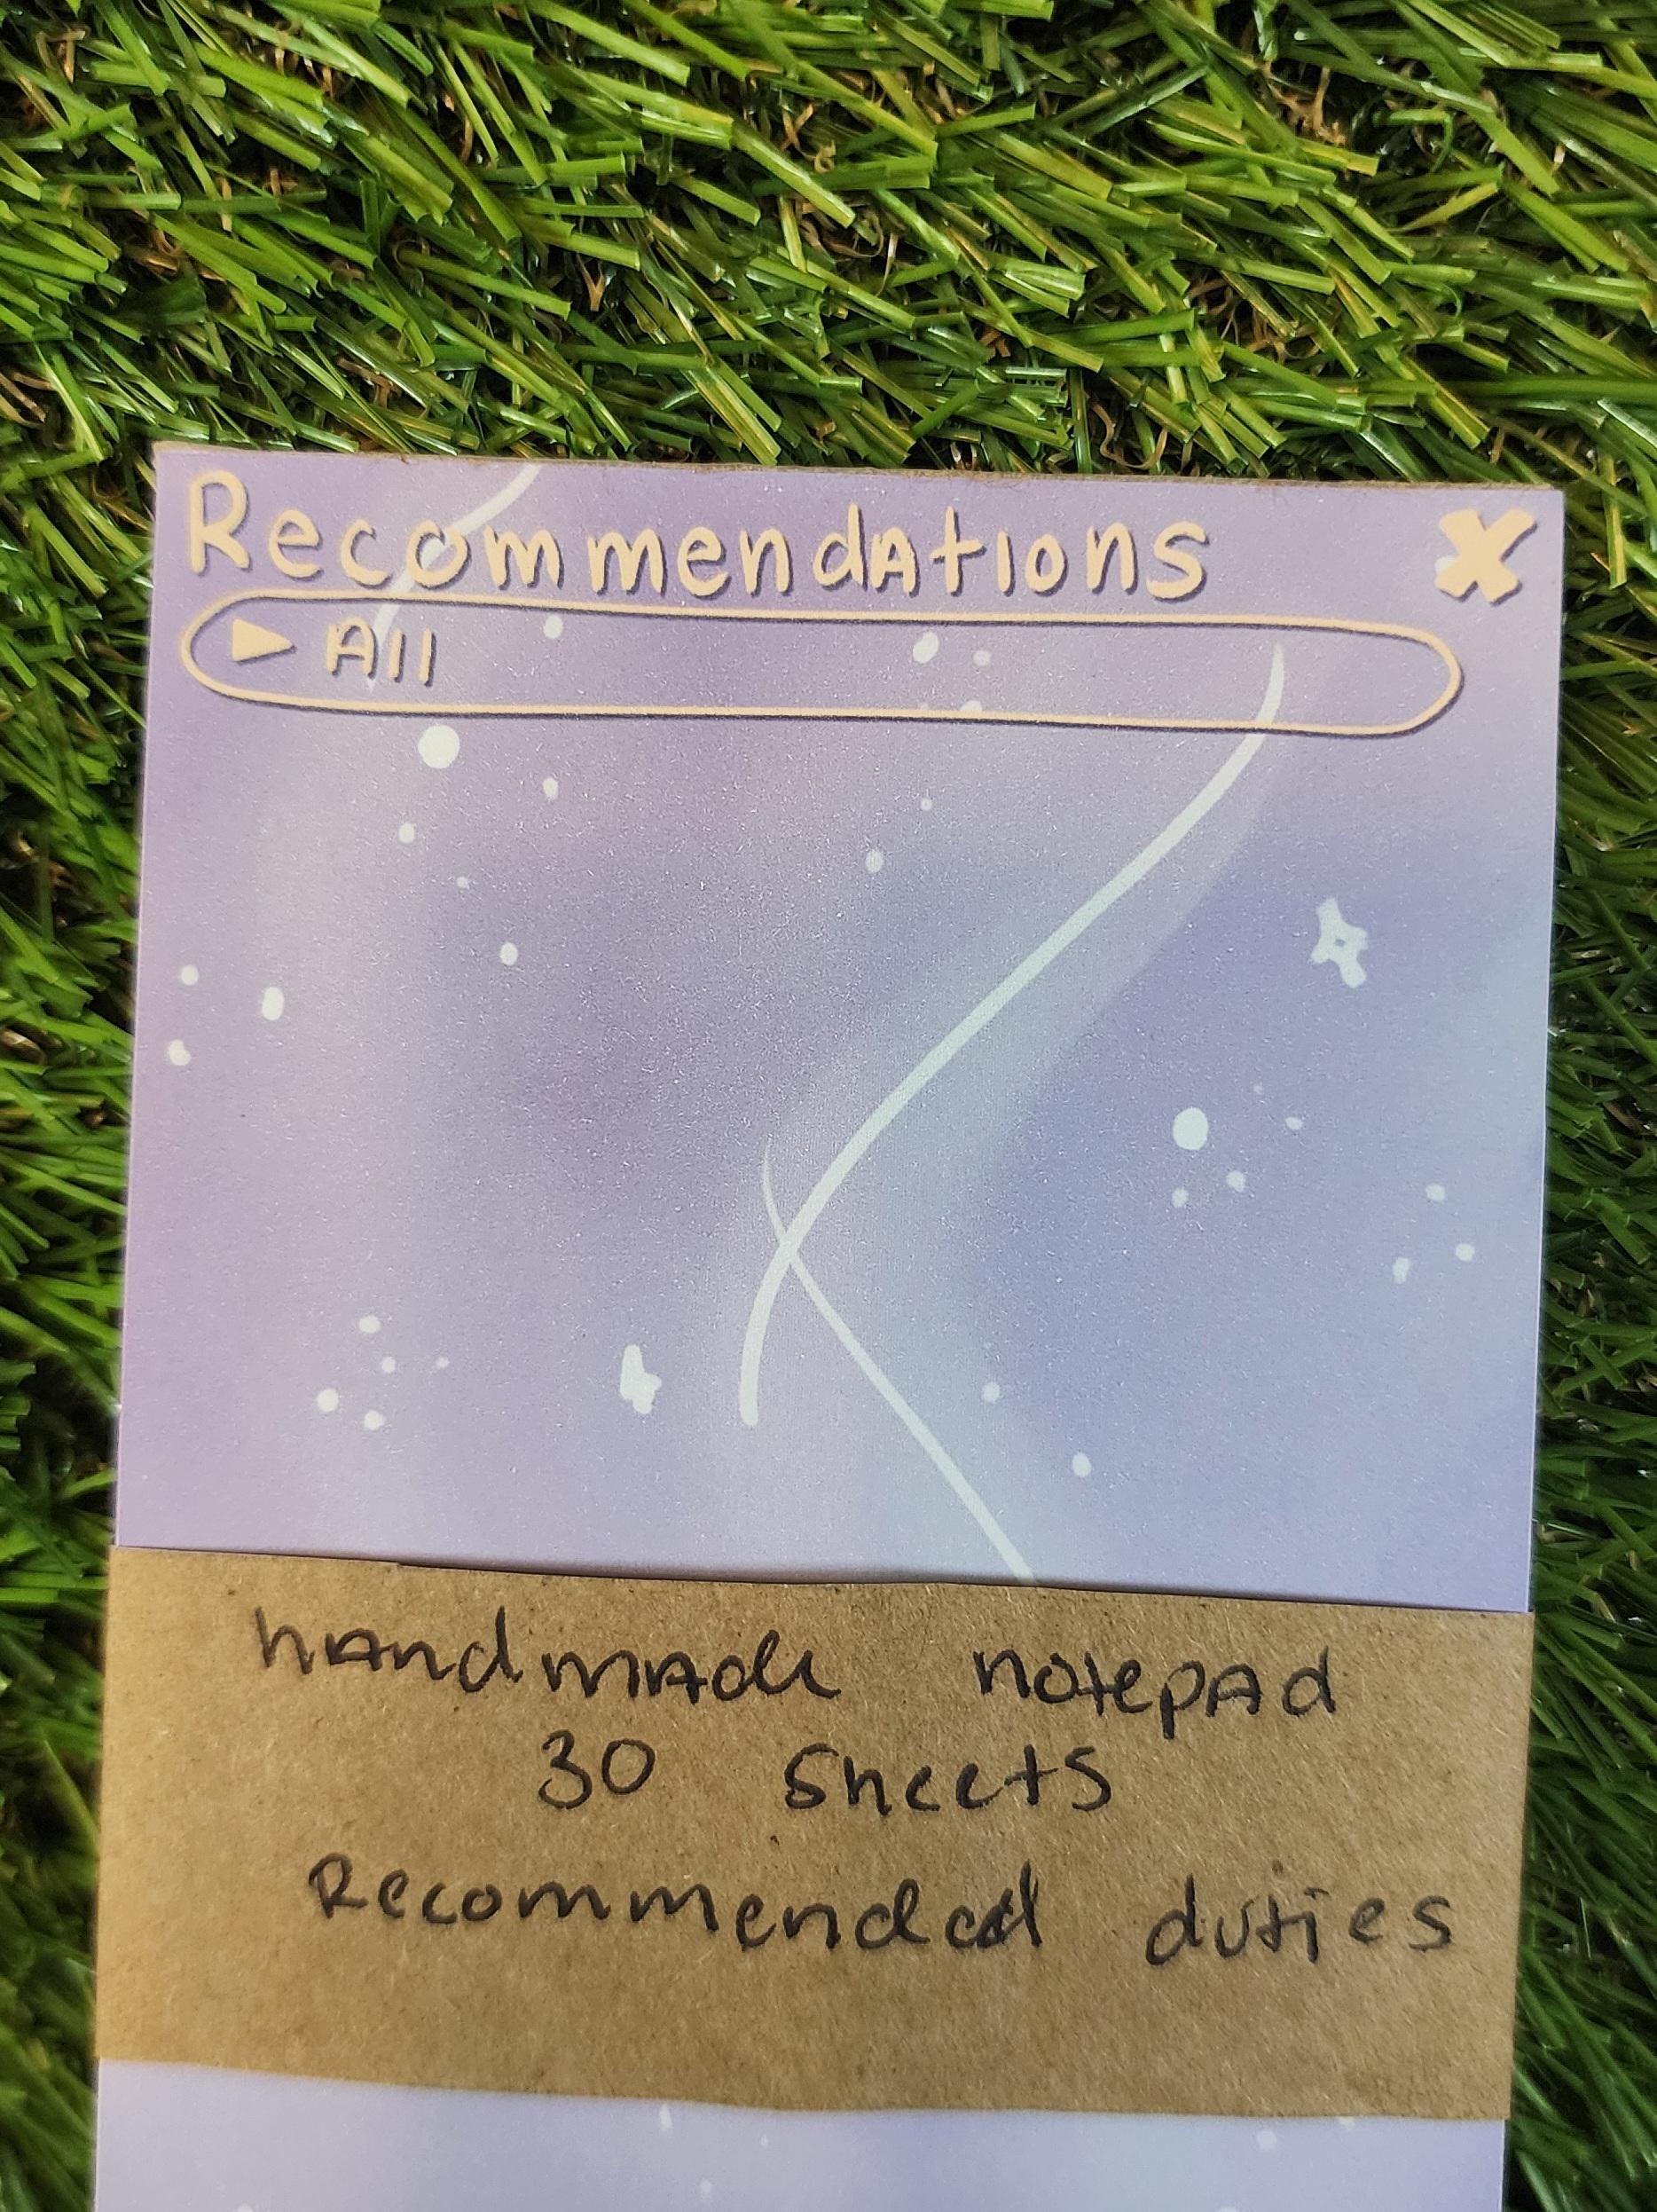 Recommendations X
▶ All
handmade notepad
30 sheets
Recommended duties